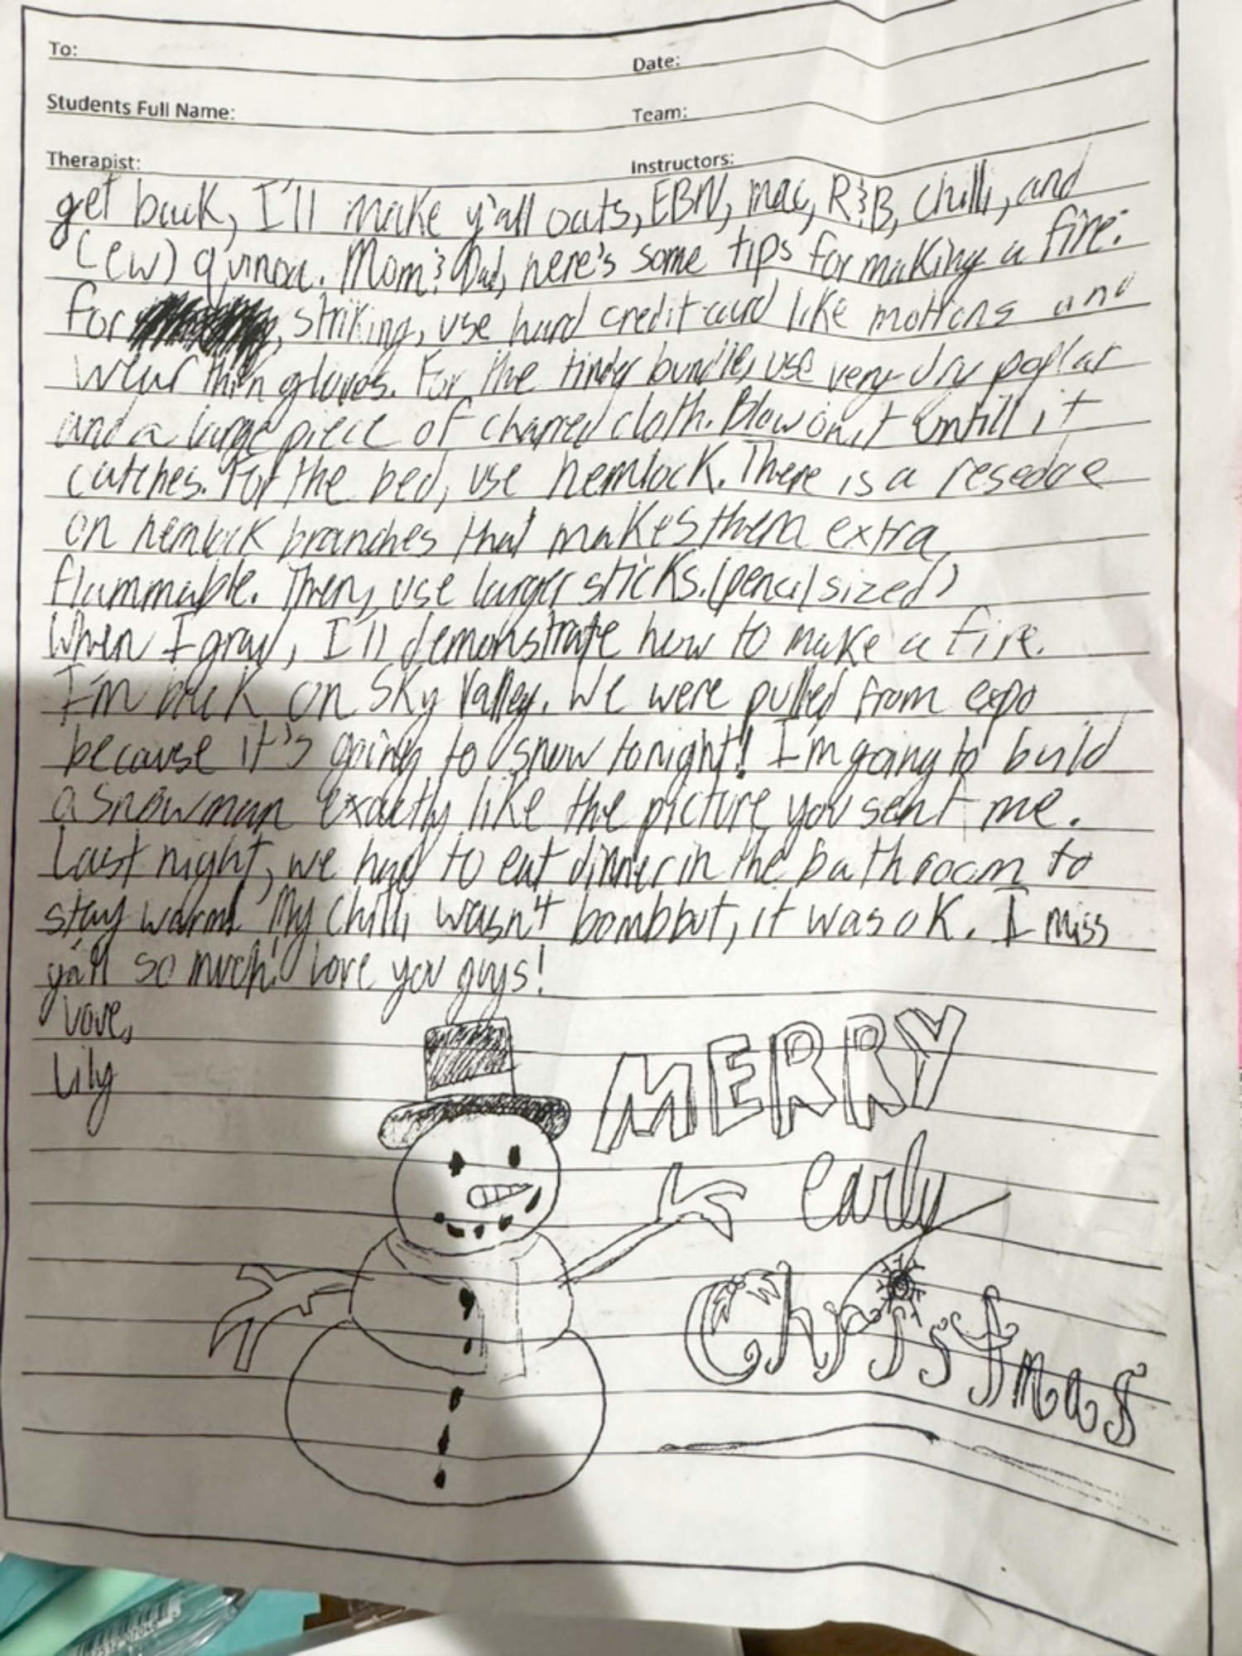 To:
Date:
Students Full Name:
Team:
Therapist:
Instructors:
get back, I'll make y'all oats, EBN, mac, R&B, chilli, and
(ew) quinoa. Mom & Dad, here's some tips for making a fire:
for striking, use hard credit card like mottons and
wear thin gloves. For the tinder bundle, use very dry poplar
and a large piece of charred cloth. Blow on it untill it
catches. For the bed, use hemlock. There is a resedoe
on hemlock branches that makes them extra
flammable. Then, use larger sticks. (pencil sized)
When I grad, I'll demonstrate how to make a fire.
I'm back on Sky Valley. We were pulled from expo
because it's going to snow tonight! I'm going to build
a snowman exactly like the picture you sent me.
Last night, we had to eat dinner in the bathroom to
stay warm. My chilli wasn't bomb but, it was ok. I miss
ya'll so much! Love you guys!
Love,
Lily
MERRY
early
Christmas